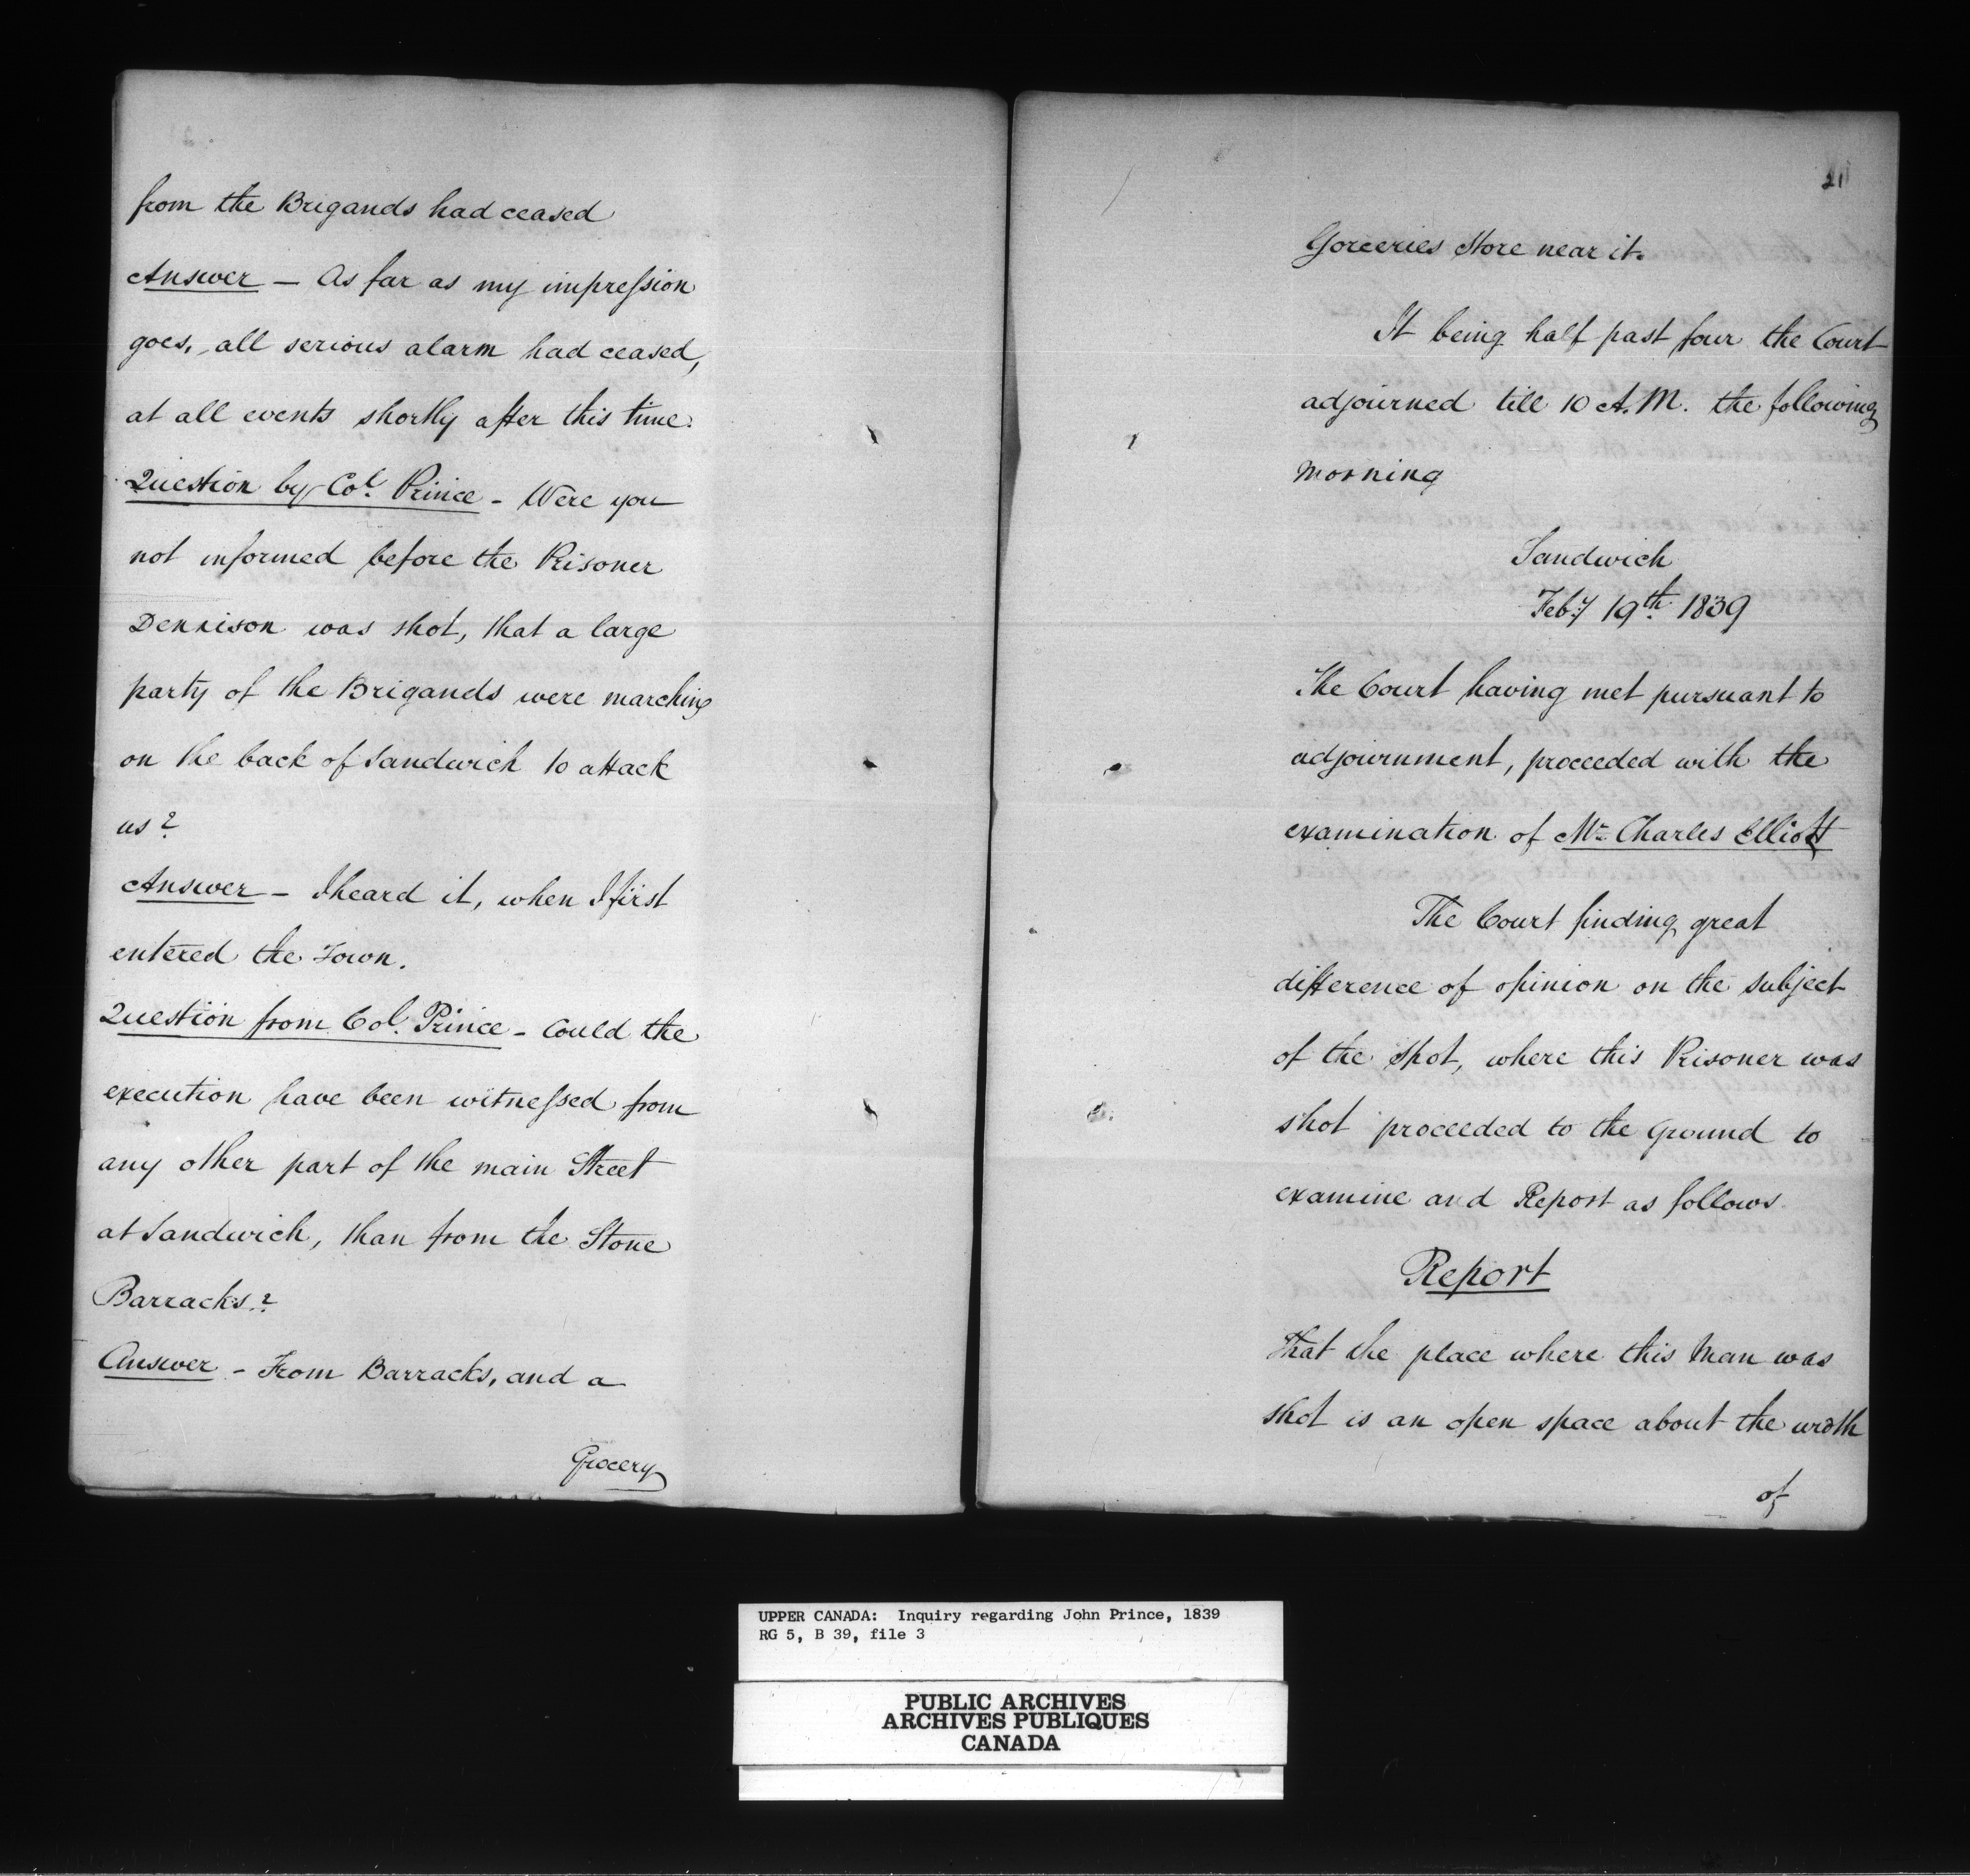 from the Brigands had ceased
Answer — As far as my impression
goes, all serious alarm had ceased,
at all events shortly after this time.
Question by Col. Prince - Were you
not informed before the Prisoner
Dennison was shot, that a large
party of the Brigands were marching
on the back of Sandwich to attack
us?
Answer — I heard it, when I first
entered the Town.
Question from Col. Prince - Could the
execution have been witnessed from
any other part of the main Street
at Sandwich, than from the Stone
Barracks?
Answer - From Barracks, and a
Grocery
21
Gorceries Store near it.
It being half past four the Court
adjourned till 10 A.M. the following
morning
Sandwich
Feby 19th. 1839
The Court having met pursuant to
adjournment, proceeded with the
examination of Mr Charles Elliott
The Court finding great
difference of opinion on the subject
of the spot, where this Prisoner was
shot proceeded to the Ground to
examine and Report as follows.
Report
That the place where this Man was
shot is an open space about the width
of
UPPER CANADA: Inquiry regarding John Prince, 1839
RG 5, B 39, file 3
PUBLIC ARCHIVES
ARCHIVES PUBLIQUES
CANADA